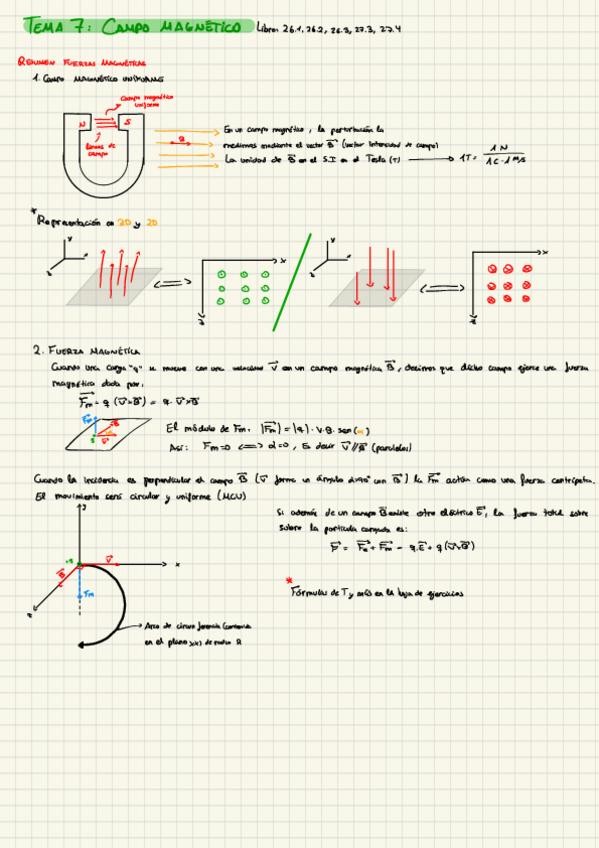 TEMA 7: CAMPO MAGNÉTICO Libro: 26.1, 26.2, 26.3, 27.3, 27.4
RESUMEN FUERZAS MAGNÉTICAS
1. CAMPO MAGNÉTICO UNIFORME
Campo magnético
uniforme
N S
líneas de
campo
B
En un campo magnético, la perturbación la
medimos mediante el vector B⃗ (vector intensidad de campo)
La unidad de B⃗ en el S.I es el Tesla (T) → 1T = 1N / 1C · 1 m/s
* Representación en 3D y 2D
y
x
z
<=>
x
z
y
x
z
<=>
x
z
2. FUERZA MAGNÉTICA
Cuando una carga "q" se mueve con una velocidad V⃗ en un campo magnético B⃗, decimos que dicho campo ejerce una fuerza
magnética dada por:
F⃗m = q (V⃗×B⃗) = q · V⃗×B⃗
El módulo de Fm: |F⃗m| = |q| · V · B · sen(α)
Así: Fm=0 <=> α=0, Es decir V⃗//B⃗ (paralelos)
Cuando la incidencia es perpendicular al campo B⃗ (V⃗ forma un ángulo de 90° con B⃗) la F⃗m actúa como una fuerza centrípeta.
El movimiento será circular y uniforme (MCU)
y
V⃗
x
B⃗
Fm
z
Arco de circunferencia contenida
en el plano de radio R
Si además de un campo B⃗ existe otro eléctrico E⃗, la fuerza total sobre
sobre la partícula cargada es:
F⃗ = F⃗e + F⃗m = q·E⃗ + q (V⃗×B⃗)
* Fórmulas de T y más en la hoja de ejercicios